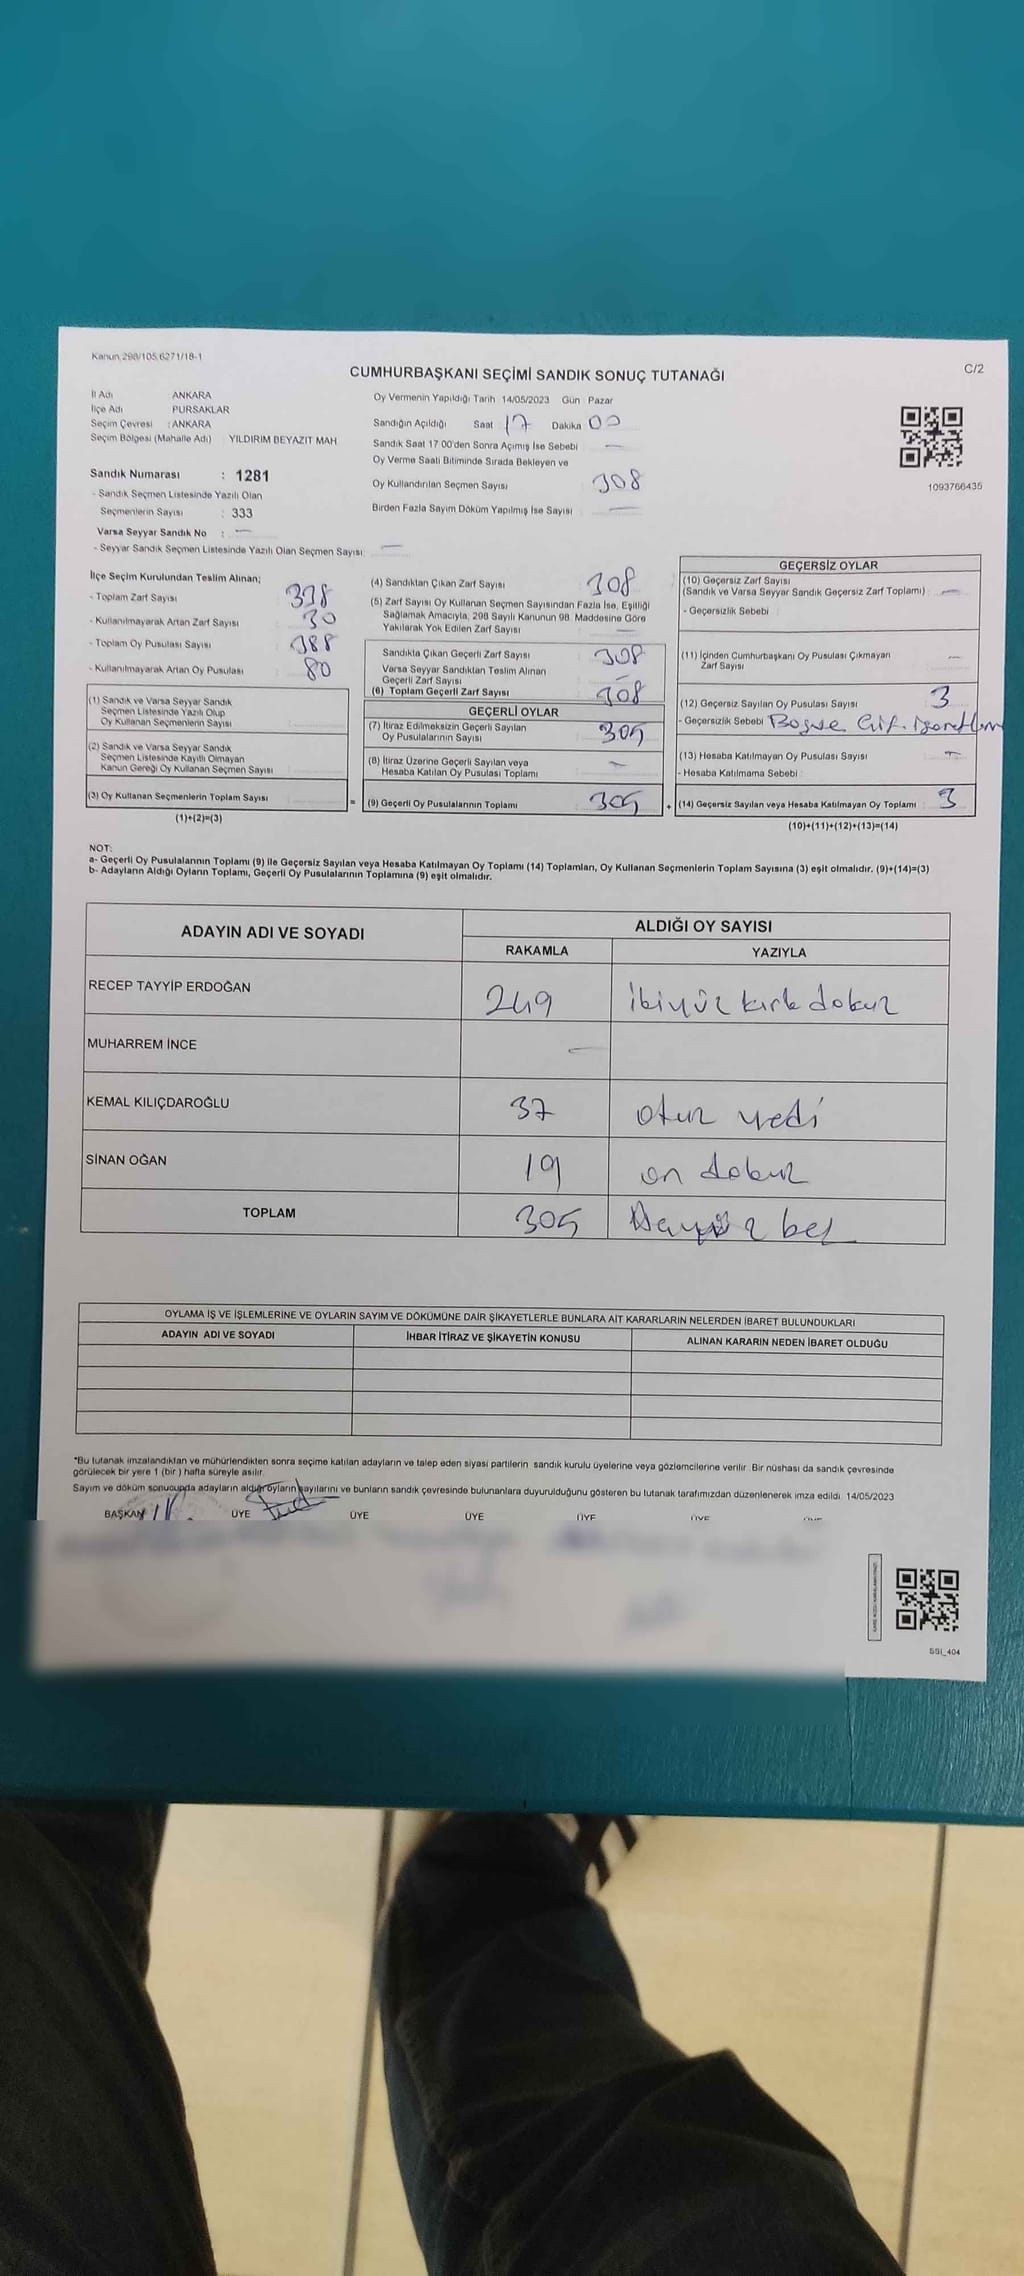 Kanun 298/105,6271/18-1
C/2
CUMHURBAŞKANI SEÇİMİ SANDIK SONUÇ TUTANAĞI
İl Adı ANKARA
İlçe Adı PURSAKLAR
Seçim Çevresi : ANKARA
Seçim Bölgesi (Mahalle Adı) YILDIRIM BEYAZIT MAH
Sandık Numarası : 1281
- Sandık Seçmen Listesinde Yazılı Olan
Seçmenlerin Sayısı : 333
Varsa Seyyar Sandık No : —
- Seyyar Sandık Seçmen Listesinde Yazılı Olan Seçmen Sayısı: —
Oy Vermenin Yapıldığı Tarih 14/05/2023 Gün Pazar
Sandığın Açıldığı Saat 17 Dakika 00
Sandık Saat 17 00'den Sonra Açımış İse Sebebi —
Oy Verme Saati Bitiminde Sırada Bekleyen ve
Oy Kullandırılan Seçmen Sayısı 308
Birden Fazla Sayım Döküm Yapılmış İse Sayısı —
1093766435
İlçe Seçim Kurulundan Teslim Alınan;
- Toplam Zarf Sayısı 338
- Kullanılmayarak Artan Zarf Sayısı 30
- Toplam Oy Pusulası Sayısı 388
- Kullanılmayarak Artan Oy Pusulası 80
(1) Sandık ve Varsa Seyyar Sandık
Seçmen Listesinde Yazılı Olup
Oy Kullanan Seçmenlerin Sayısı
(2) Sandık ve Varsa Seyyar Sandık
Seçmen Listesinde Kayıtlı Olmayan
Kanun Gereği Oy Kullanan Seçmen Sayısı
(3) Oy Kullanan Seçmenlerin Toplam Sayısı
(1)+(2)=(3)
(4) Sandıktan Çıkan Zarf Sayısı 308
(5) Zarf Sayısı Oy Kullanan Seçmen Sayısından Fazla İse, Eşitliği
Sağlamak Amacıyla, 298 Sayılı Kanunun 98. Maddesine Göre
Yakılarak Yok Edilen Zarf Sayısı —
Sandıkta Çıkan Geçerli Zarf Sayısı 308
Varsa Seyyar Sandıktan Teslim Alınan
Geçerli Zarf Sayısı —
(6) Toplam Geçerli Zarf Sayısı 308
GEÇERLİ OYLAR
(7) İtiraz Edilmeksizin Geçerli Sayılan
Oy Pusulalarının Sayısı 305
(8) İtiraz Üzerine Geçerli Sayılan veya
Hesaba Katılan Oy Pusulası Toplamı —
= (9) Geçerli Oy Pusulalarının Toplamı 305 +
GEÇERSİZ OYLAR
(10) Geçersiz Zarf Sayısı
(Sandık ve Varsa Seyyar Sandık Geçersiz Zarf Toplamı) —
- Geçersizlik Sebebi
(11) İçinden Cumhurbaşkanı Oy Pusulası Çıkmayan
Zarf Sayısı —
(12) Geçersiz Sayılan Oy Pusulası Sayısı 3
- Geçersizlik Sebebi Boş ve Çif.
(13) Hesaba Katılmayan Oy Pusulası Sayısı —
- Hesaba Katılmama Sebebi
(14) Geçersiz Sayılan veya Hesaba Katılmayan Oy Toplamı 3
(10)+(11)+(12)+(13)=(14)
NOT:
a- Geçerli Oy Pusulalarının Toplamı (9) ile Geçersiz Sayılan veya Hesaba Katılmayan Oy Toplamı (14) Toplamları, Oy Kullanan Seçmenlerin Toplam Sayısına (3) eşit olmalıdır. (9)+(14)=(3)
b- Adayların Aldığı Oyların Toplamı, Geçerli Oy Pusulalarının Toplamına (9) eşit olmalıdır.
ADAYIN ADI VE SOYADI ALDIĞI OY SAYISI
RAKAMLA YAZIYLA
RECEP TAYYİP ERDOĞAN 249 ikiyüz kırk dokuz
MUHARREM İNCE —
KEMAL KILIÇDAROĞLU 37 otuz yedi
SİNAN OĞAN 19 on dokuz
TOPLAM 305 beş
OYLAMA İŞ VE İŞLEMLERİNE VE OYLARIN SAYIM VE DÖKÜMÜNE DAİR ŞİKAYETLERLE BUNLARA AİT KARARLARIN NELERDEN İBARET BULUNDUKLARI
ADAYIN ADI VE SOYADI İHBAR İTİRAZ VE ŞİKAYETİN KONUSU ALINAN KARARIN NEDEN İBARET OLDUĞU
*Bu tutanak imzalandıktan ve mühürlendikten sonra seçime katılan adayların ve talep eden siyasi partilerin sandık kurulu üyelerine veya gözlemcilerine verilir. Bir nüshası da sandık çevresinde
görülecek bir yere 1 (bir ) hafta süreyle asılır.
Sayım ve döküm sonucunda adayların aldığı oyların sayılarını ve bunların sandık çevresinde bulunanlara duyurulduğunu gösteren bu tutanak tarafımızdan düzenlenerek imza edildi. 14/05/2023
BAŞKAN ÜYE ÜYE ÜYE ÜYE ÜYE
SSI_404